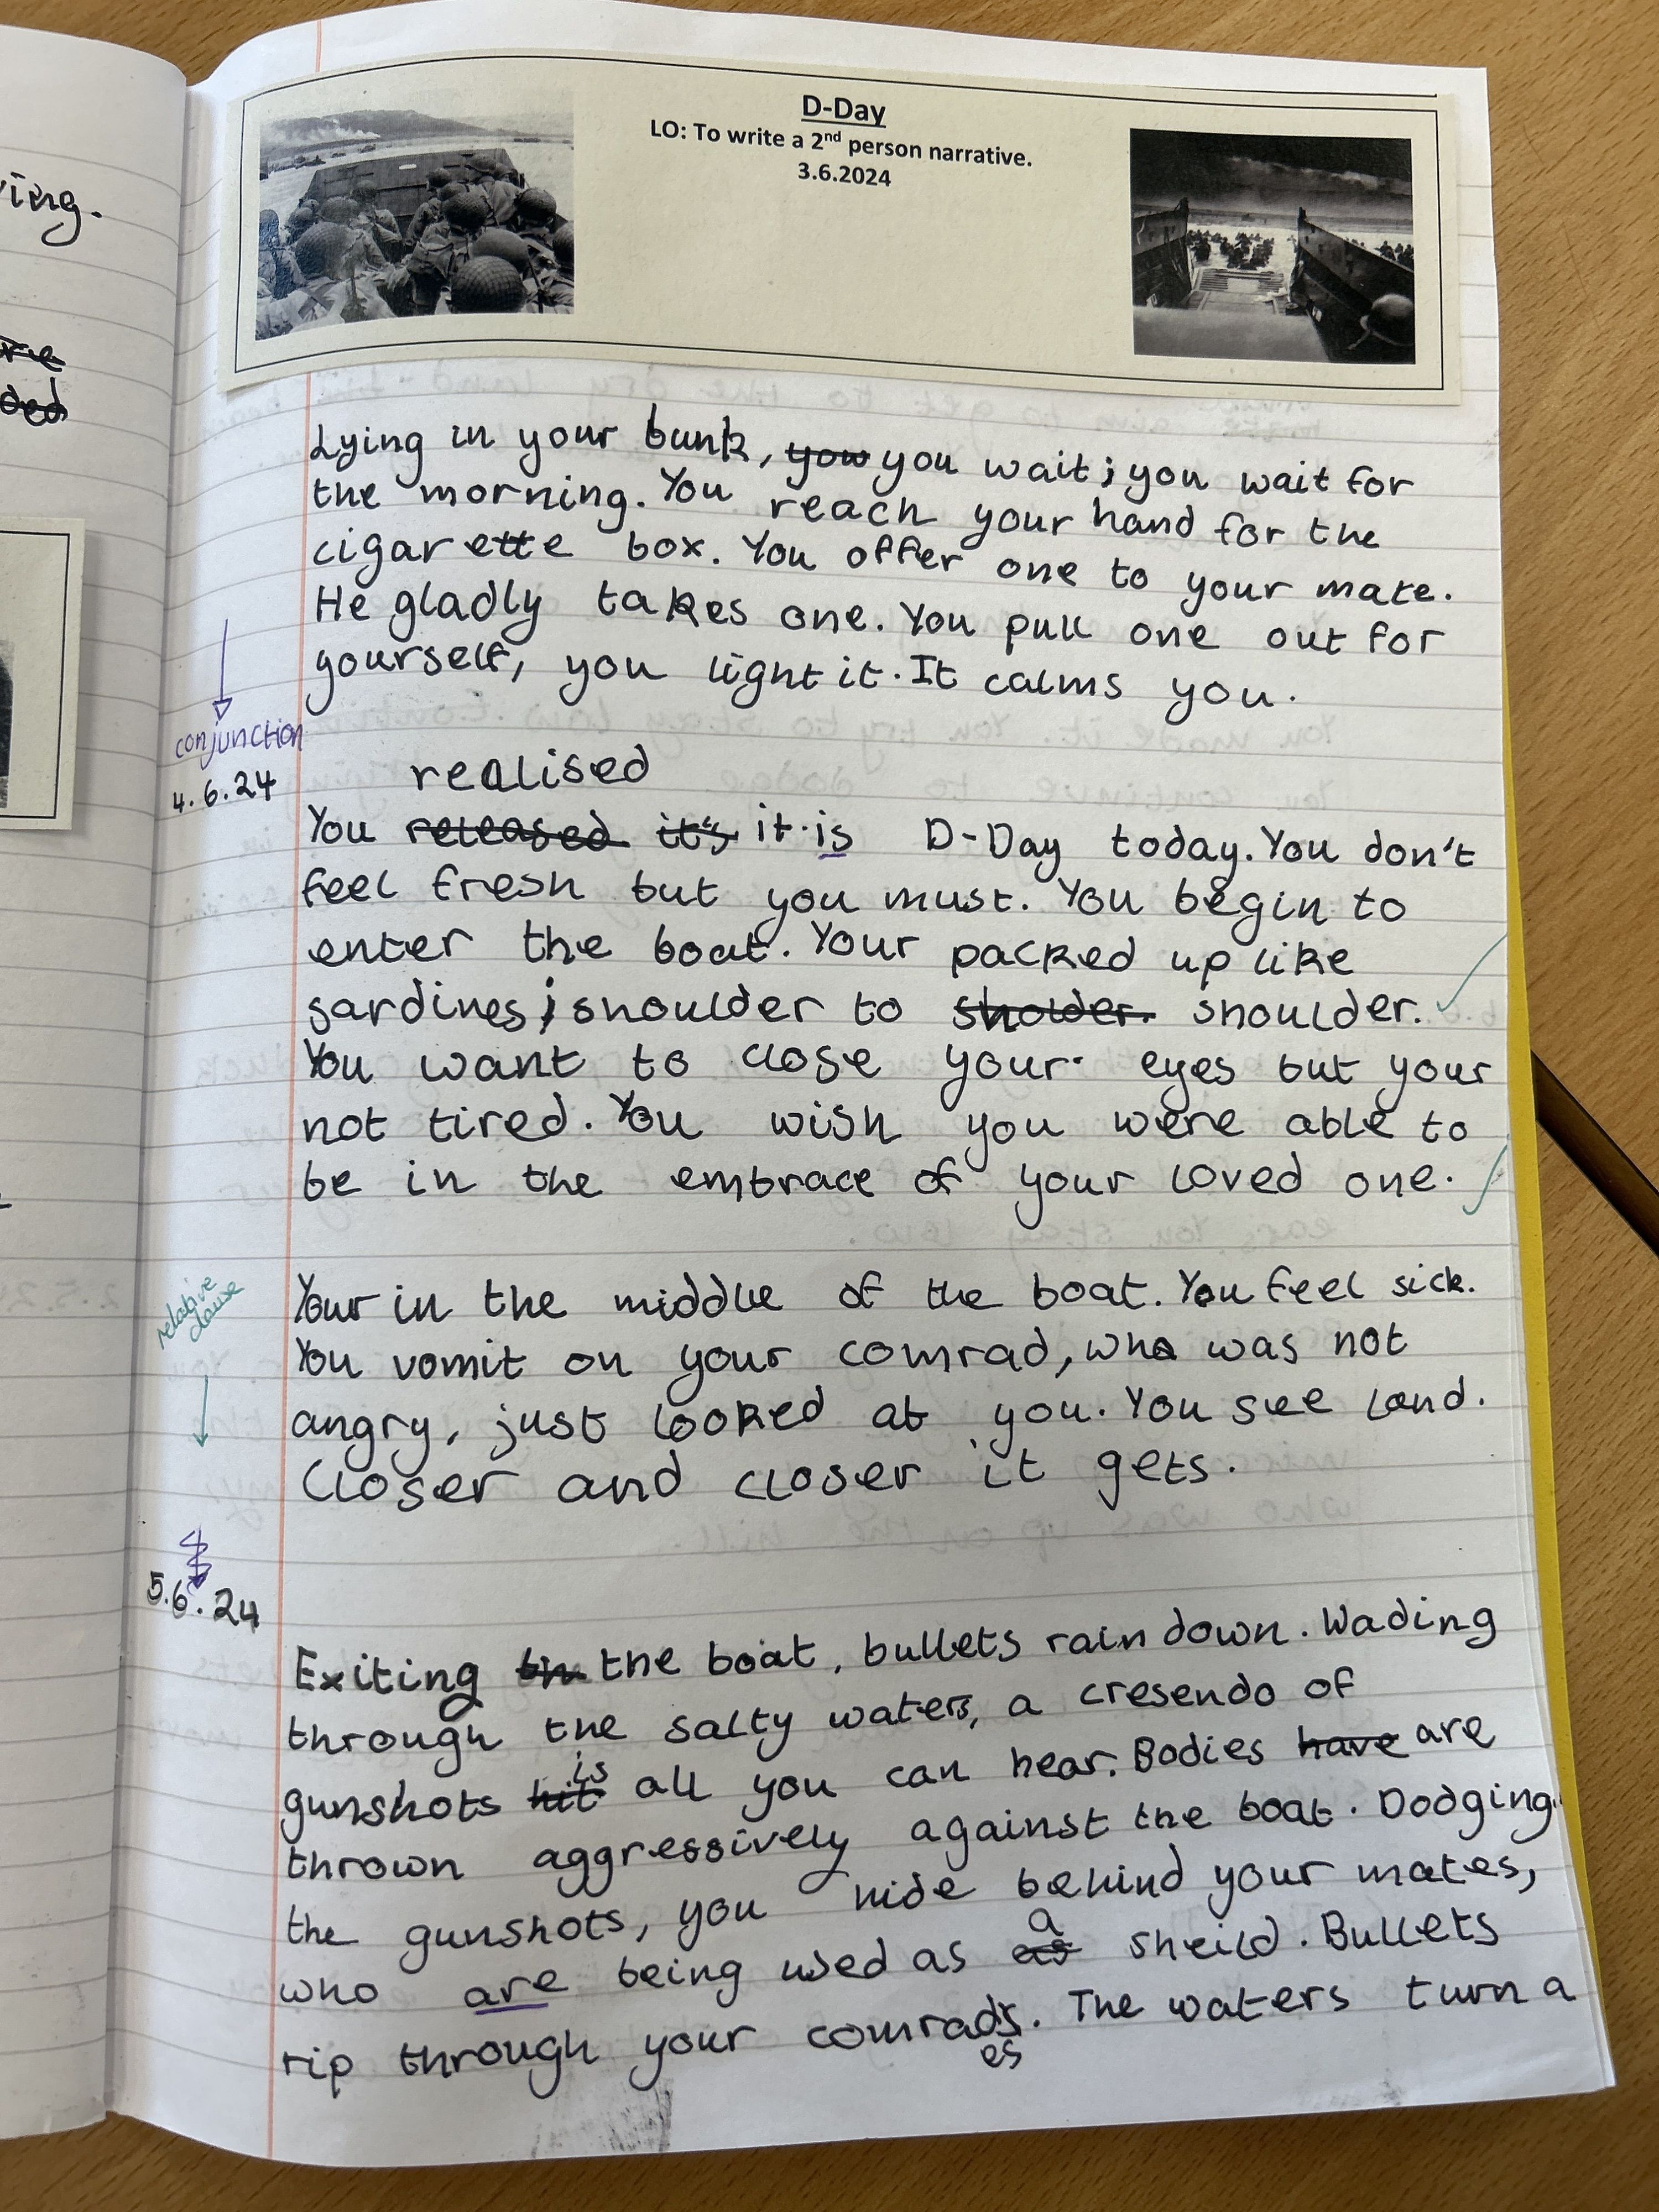 ying.
ded
D-Day
LO: To write a 2nd person narrative.
3.6.2024
Lying in your bunk, yow you wait; you wait for
the morning. You reach your hand for the
cigarette box. You offer one to your mate.
He gladly takes one. You pull one out for
yourself, you light it. It calms you.
conjunction
4.6.24
realised
You released it's it is D-Day today. You don't
feel fresh but you must. You begin to
enter the boat. Your packed up like
sardines; shoulder to sholder. shoulder.
You want to close your eyes but your
not tired. You wish you were able to
be in the embrace of your loved one.
relative
clause
Your in the middle of the boat. You feel sick.
You vomit on your comrad, who was not
angry, just looked at you. You see land.
Closer and closer it gets.
5.6.24
Exiting the boat, bullets rain down. Wading
through the salty waters, a cresendo of
is
gunshots hit all you can hear. Bodies have are
thrown aggressively against the boat. Dodging
the gunshots, you hide behind your mates,
a
who are being used as as sheild. Bullets
rip through your comrads. The waters turn a
es